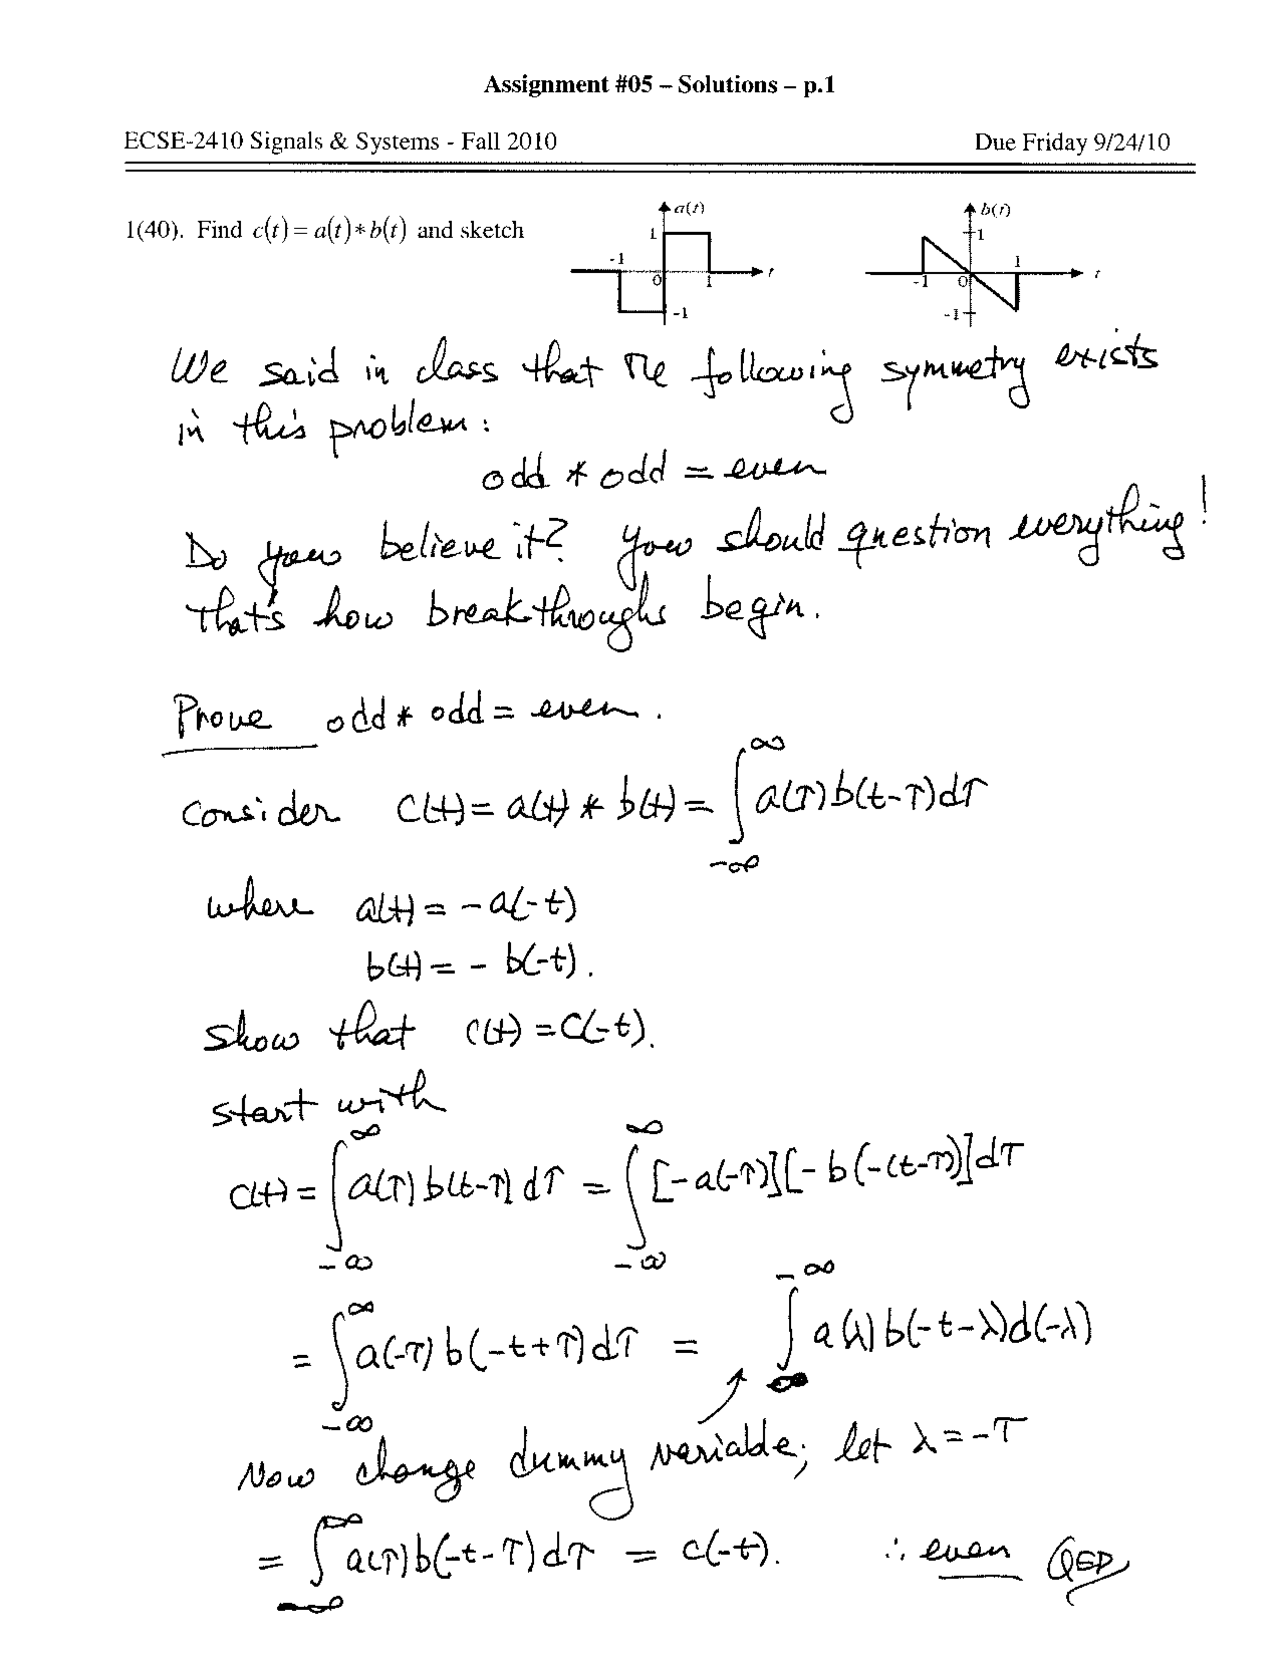 Assignment #05 – Solutions – p.1
ECSE-2410 Signals & Systems - Fall 2010 Due Friday 9/24/10
1(40). Find c(t) = a(t)*b(t) and sketch
a(t)
1
-1
0
1
t
-1
b(t)
1
1
-1
0
t
-1
We said in class that the following symmetry exists
in this problem:
odd * odd = even
Do you believe it? You should question everything!
That's how breakthroughs begin.
Prove odd * odd = even.
Consider c(t) = a(t) * b(t) = ∫_{-∞}^{∞} a(τ)b(t-τ)dτ
where a(t) = -a(-t)
b(t) = - b(-t).
Show that c(t) = c(-t).
start with
c(t) = ∫_{-∞}^{∞} a(τ)b(t-τ)dτ = ∫_{-∞}^{∞} [-a(-τ)][-b(-(t-τ))]dτ
= ∫_{-∞}^{∞} a(-τ)b(-t+τ)dτ = ∫_{∞}^{-∞} a(λ)b(-t-λ)d(-λ)
Now change dummy variable; let λ = -τ
= ∫_{-∞}^{∞} a(τ)b(-t-τ)dτ = c(-t). ∴ even QED